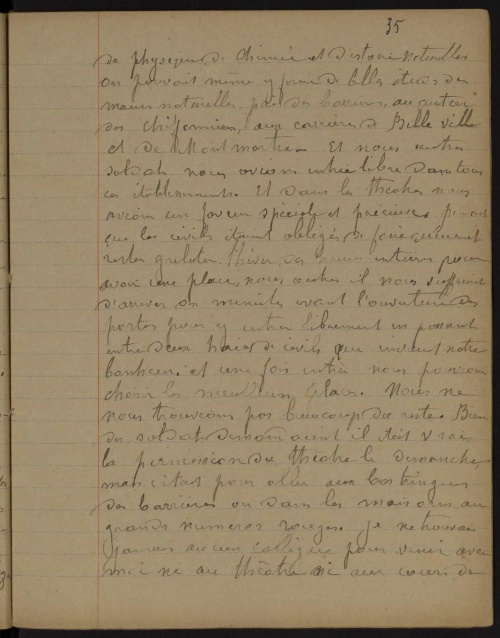 35
de physique, de chimie et d'istoire naturelles
On pouvait même y faire de belles études de
mœurs naturelles, près des barrières, au quartier
des chiffonniers, aux carrières de Belle ville
et de Montmartre. Et nous autres
soldats nous avions entrée libre dans tous
ces établissements. Et dans les théatres nous
avions une faveur spéciale et précieuse. Pendant
que les civils étaient obligés de faire queue et
rester greloter l'hiver, des heures entières pour
avoir une place, nous autres il nous suffisait
d'arriver, minutes avant l'ouverture des
portes pour y entrer librement en passant
entre deux haies de civils qui enviaient notre
bonheur. et une fois entrés nous pouvions
choisir les meilleures places. Nous ne
nous trouvions pas beaucoup du reste. Bien
des soldats demandaient il était vrai
la permission du théatre le dimanche,
mais c'était pour aller aux bastringues
des barrières ou dans les maisons aux
grands numeros rouges. je ne trouvais
jamais aucun collègue pour venir avec
moi ni au théatre ni aux cours de